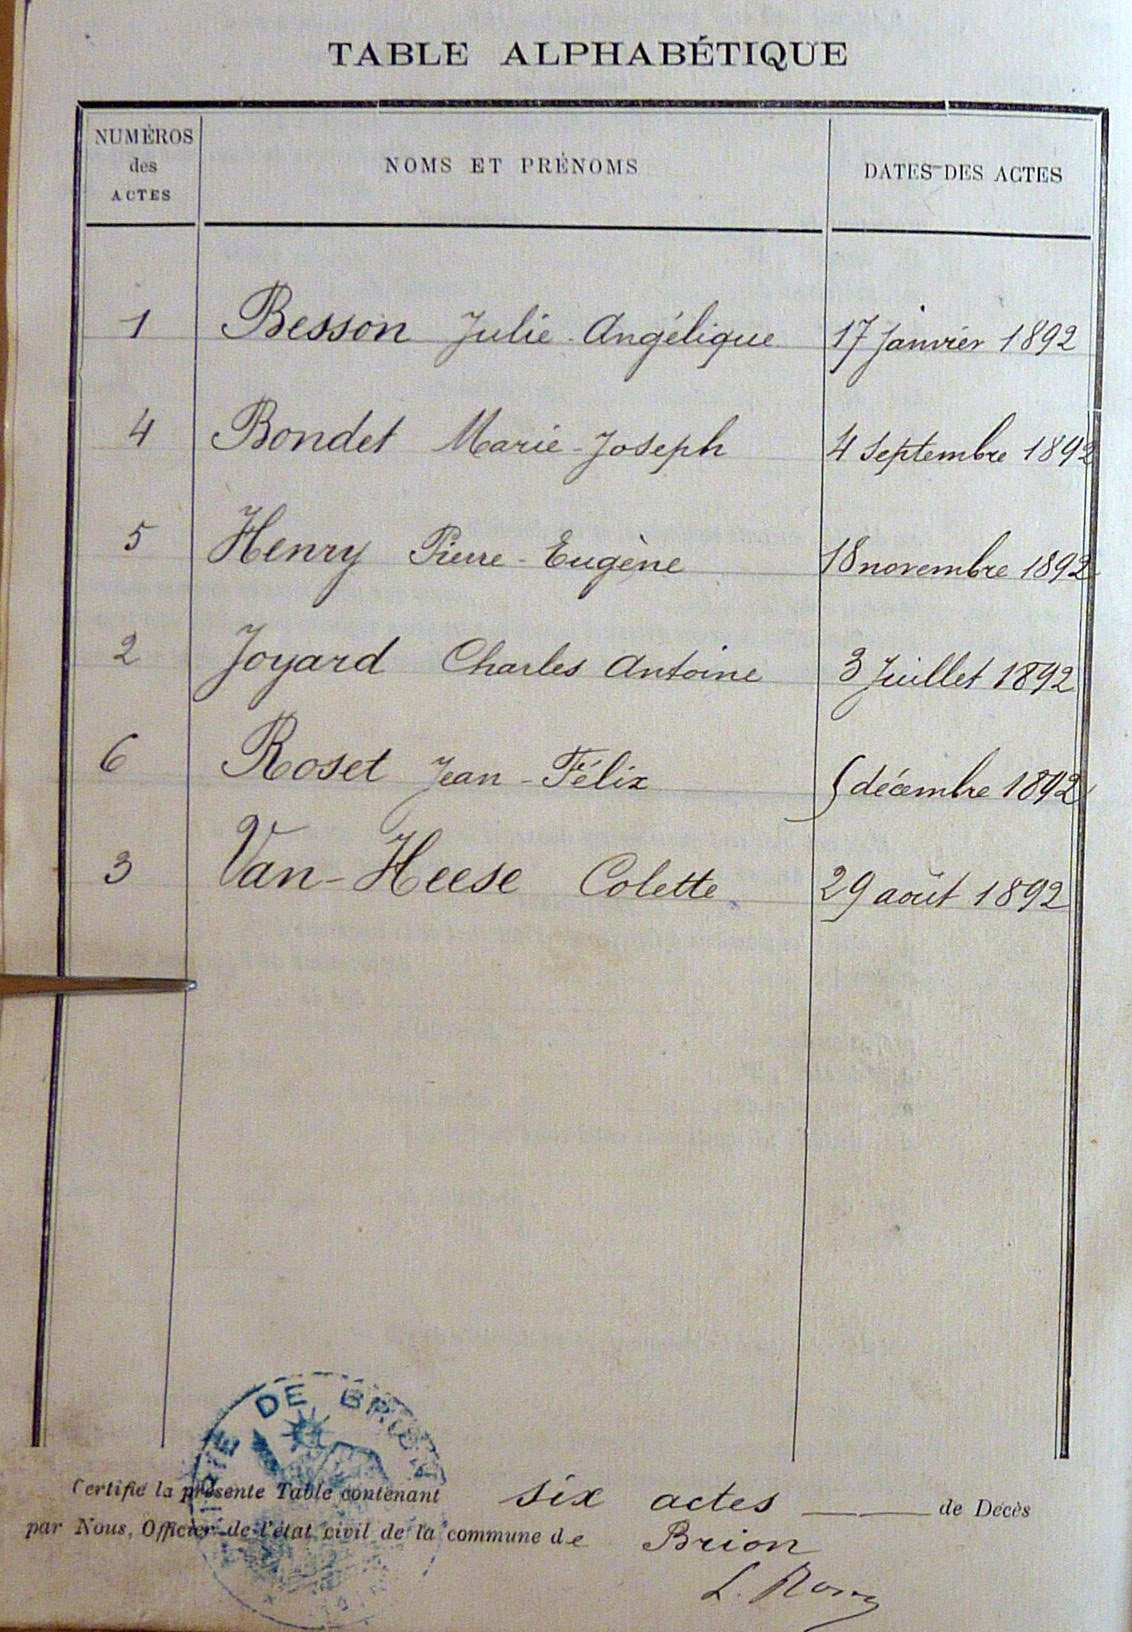 TABLE ALPHABÉTIQUE
NUMÉROS des ACTES
NOMS ET PRÉNOMS
DATES DES ACTES
1 Besson Julie-Angélique 17 janvier 1892
4 Bondet Marie-Joseph 4 Septembre 1892
5 Henry Pierre-Eugène 18 novembre 1892
2 Joyard Charles Antoine 3 Juillet 1892
6 Roset Jean-Félix 5 décembre 1892
3 Van-Heese Colette 29 août 1892
DE BRION
Certifié la présente Table contenant six actes de Décès
par Nous, Officier de l'état civil de la commune de Brion
L.